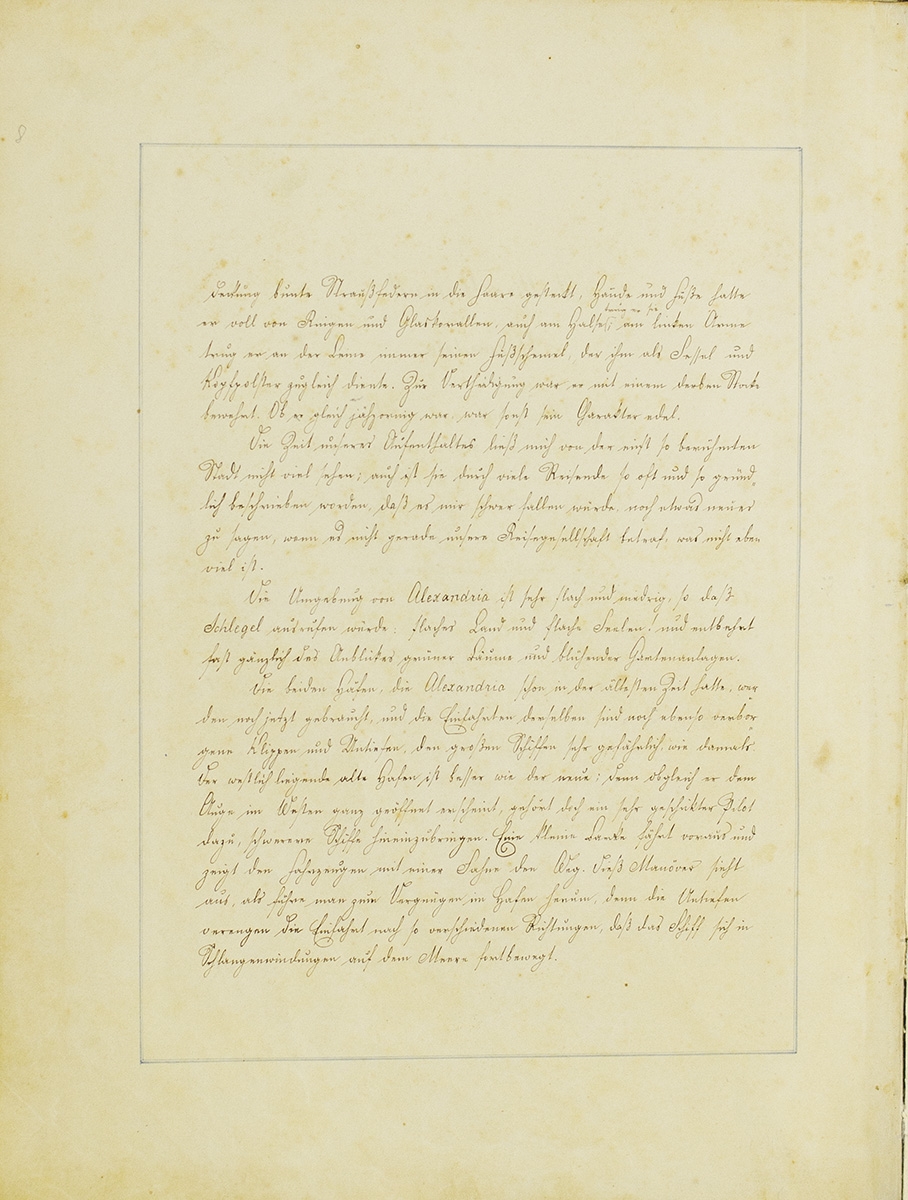 8
deckung bunte Straußfedern in die Haare gesteckt, Hände und Füße hatte
er voll von Ringen und Glaskorallen, auch am Halse; am linken Arme
trug er an der Leine immer seinen Fußschemel, der ihm als Sessel und
Kopfpolster zugleich diente. Zur Vertheidigung war er mit einem derben Stocke
bewehrt. Ob er gleich jähzornig war, war sonst sein Charakter edel.
Die Zeit unseres Aufenthaltes ließ mich von der einst so berühmten
Stadt nicht viel sehen; auch ist sie durch viele Reisende so oft und so gründ-
lich beschrieben worden, daß es mir schwer fallen würde, noch etwas neues
zu sagen, wenn es nicht gerade unsere Reisegesellschaft betraf, was nicht eben
viel ist.
Die Umgebung von Alexandria ist sehr flach und niedrig, so daß
Schlegel ausrufen würde: flaches Land und flache Seelen! und entbehrt
fast gänzlich des Anblickes grüner Bäume und blühender Gartenanlagen.
Die beiden Häfen, die Alexandria schon in der ältesten Zeit hatte, wer
den noch jetzt gebraucht, und die Einfahrten derselben sind noch ebenso verbor
gene Klippen und Untiefen, den großen Schiffen sehr gefährlich, wie damals.
Der westlich liegende alte Hafen ist besser wie der neue; denn obgleich er dem
Auge im Westen ganz geöffnet erscheint, gehört doch ein sehr geschickter Pilot
dazu, schwerere Schiffe hineinzubringen. Eine kleine Barke fährt voraus und
zeigt den Fahrzeugen mit einer Fahne den Weg. Dieß Manöver sieht
aus, als führe man zum Vergnügen im Hafen herum, denn die Untiefen
verengen die Einfahrt nach so verschiedenen Richtungen, daß das Schiff sich in
Schlangenwindungen auf dem Meere fortbewegt.